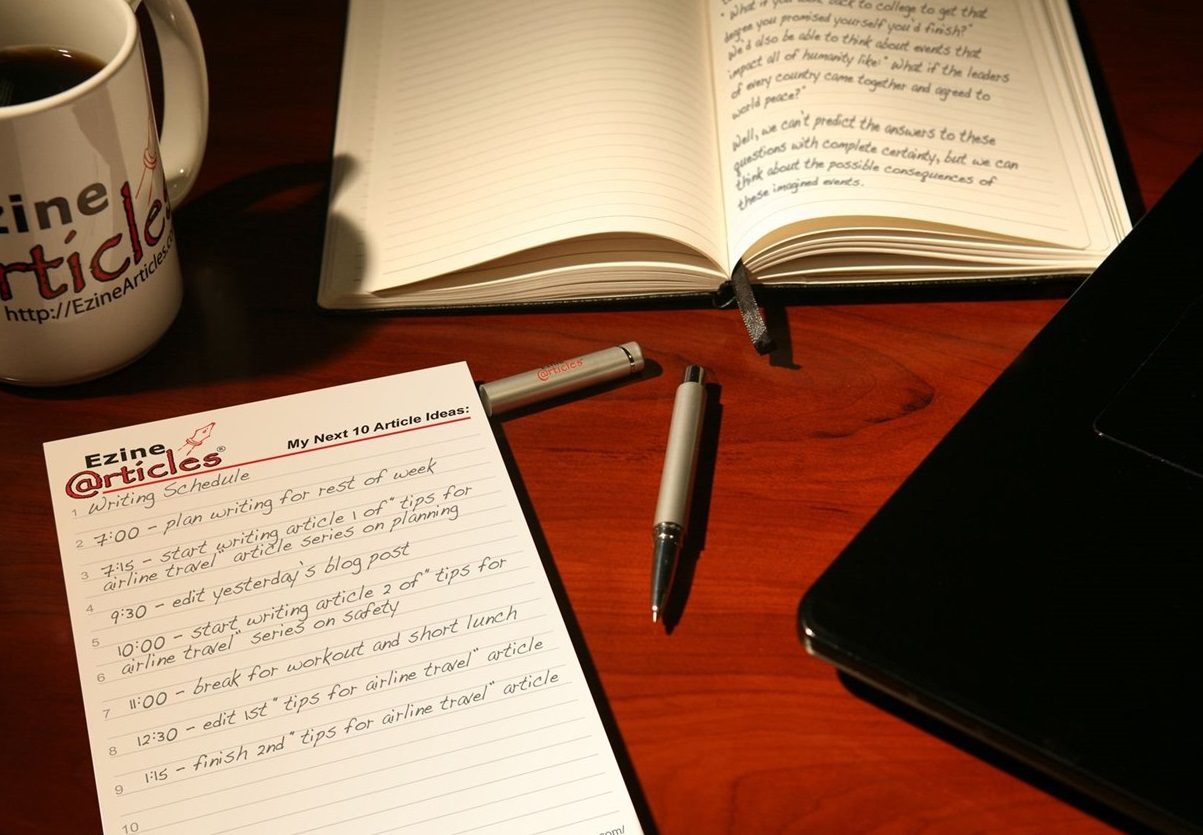 Ezine
@rticles
http://EzineArticles.c
"What if you went back to college to get that
degree you promised yourself you'd finish?"
We'd also be able to think about events that
impact all of humanity like: "What if the leaders
of every country came together and agreed to
world peace?"
Well, we can't predict the answers to these
questions with complete certainty, but we can
think about the possible consequences of
these imagined events.
Ezine
@rticles
Ezine
@rticles®
My Next 10 Article Ideas:
1 Writing Schedule
2 7:00 - plan writing for rest of week
3 7:15 - start writing article 1 of "tips for
airline travel" article series on planning
4 9:30 - edit yesterday's blog post
5 10:00 - start writing article 2 of "tips for
6 airline travel" series on safety
7 11:00 - break for workout and short lunch
8 12:30 - edit 1st "tips for airline travel" article
9 1:15 - finish 2nd "tips for airline travel" article
10
.com/